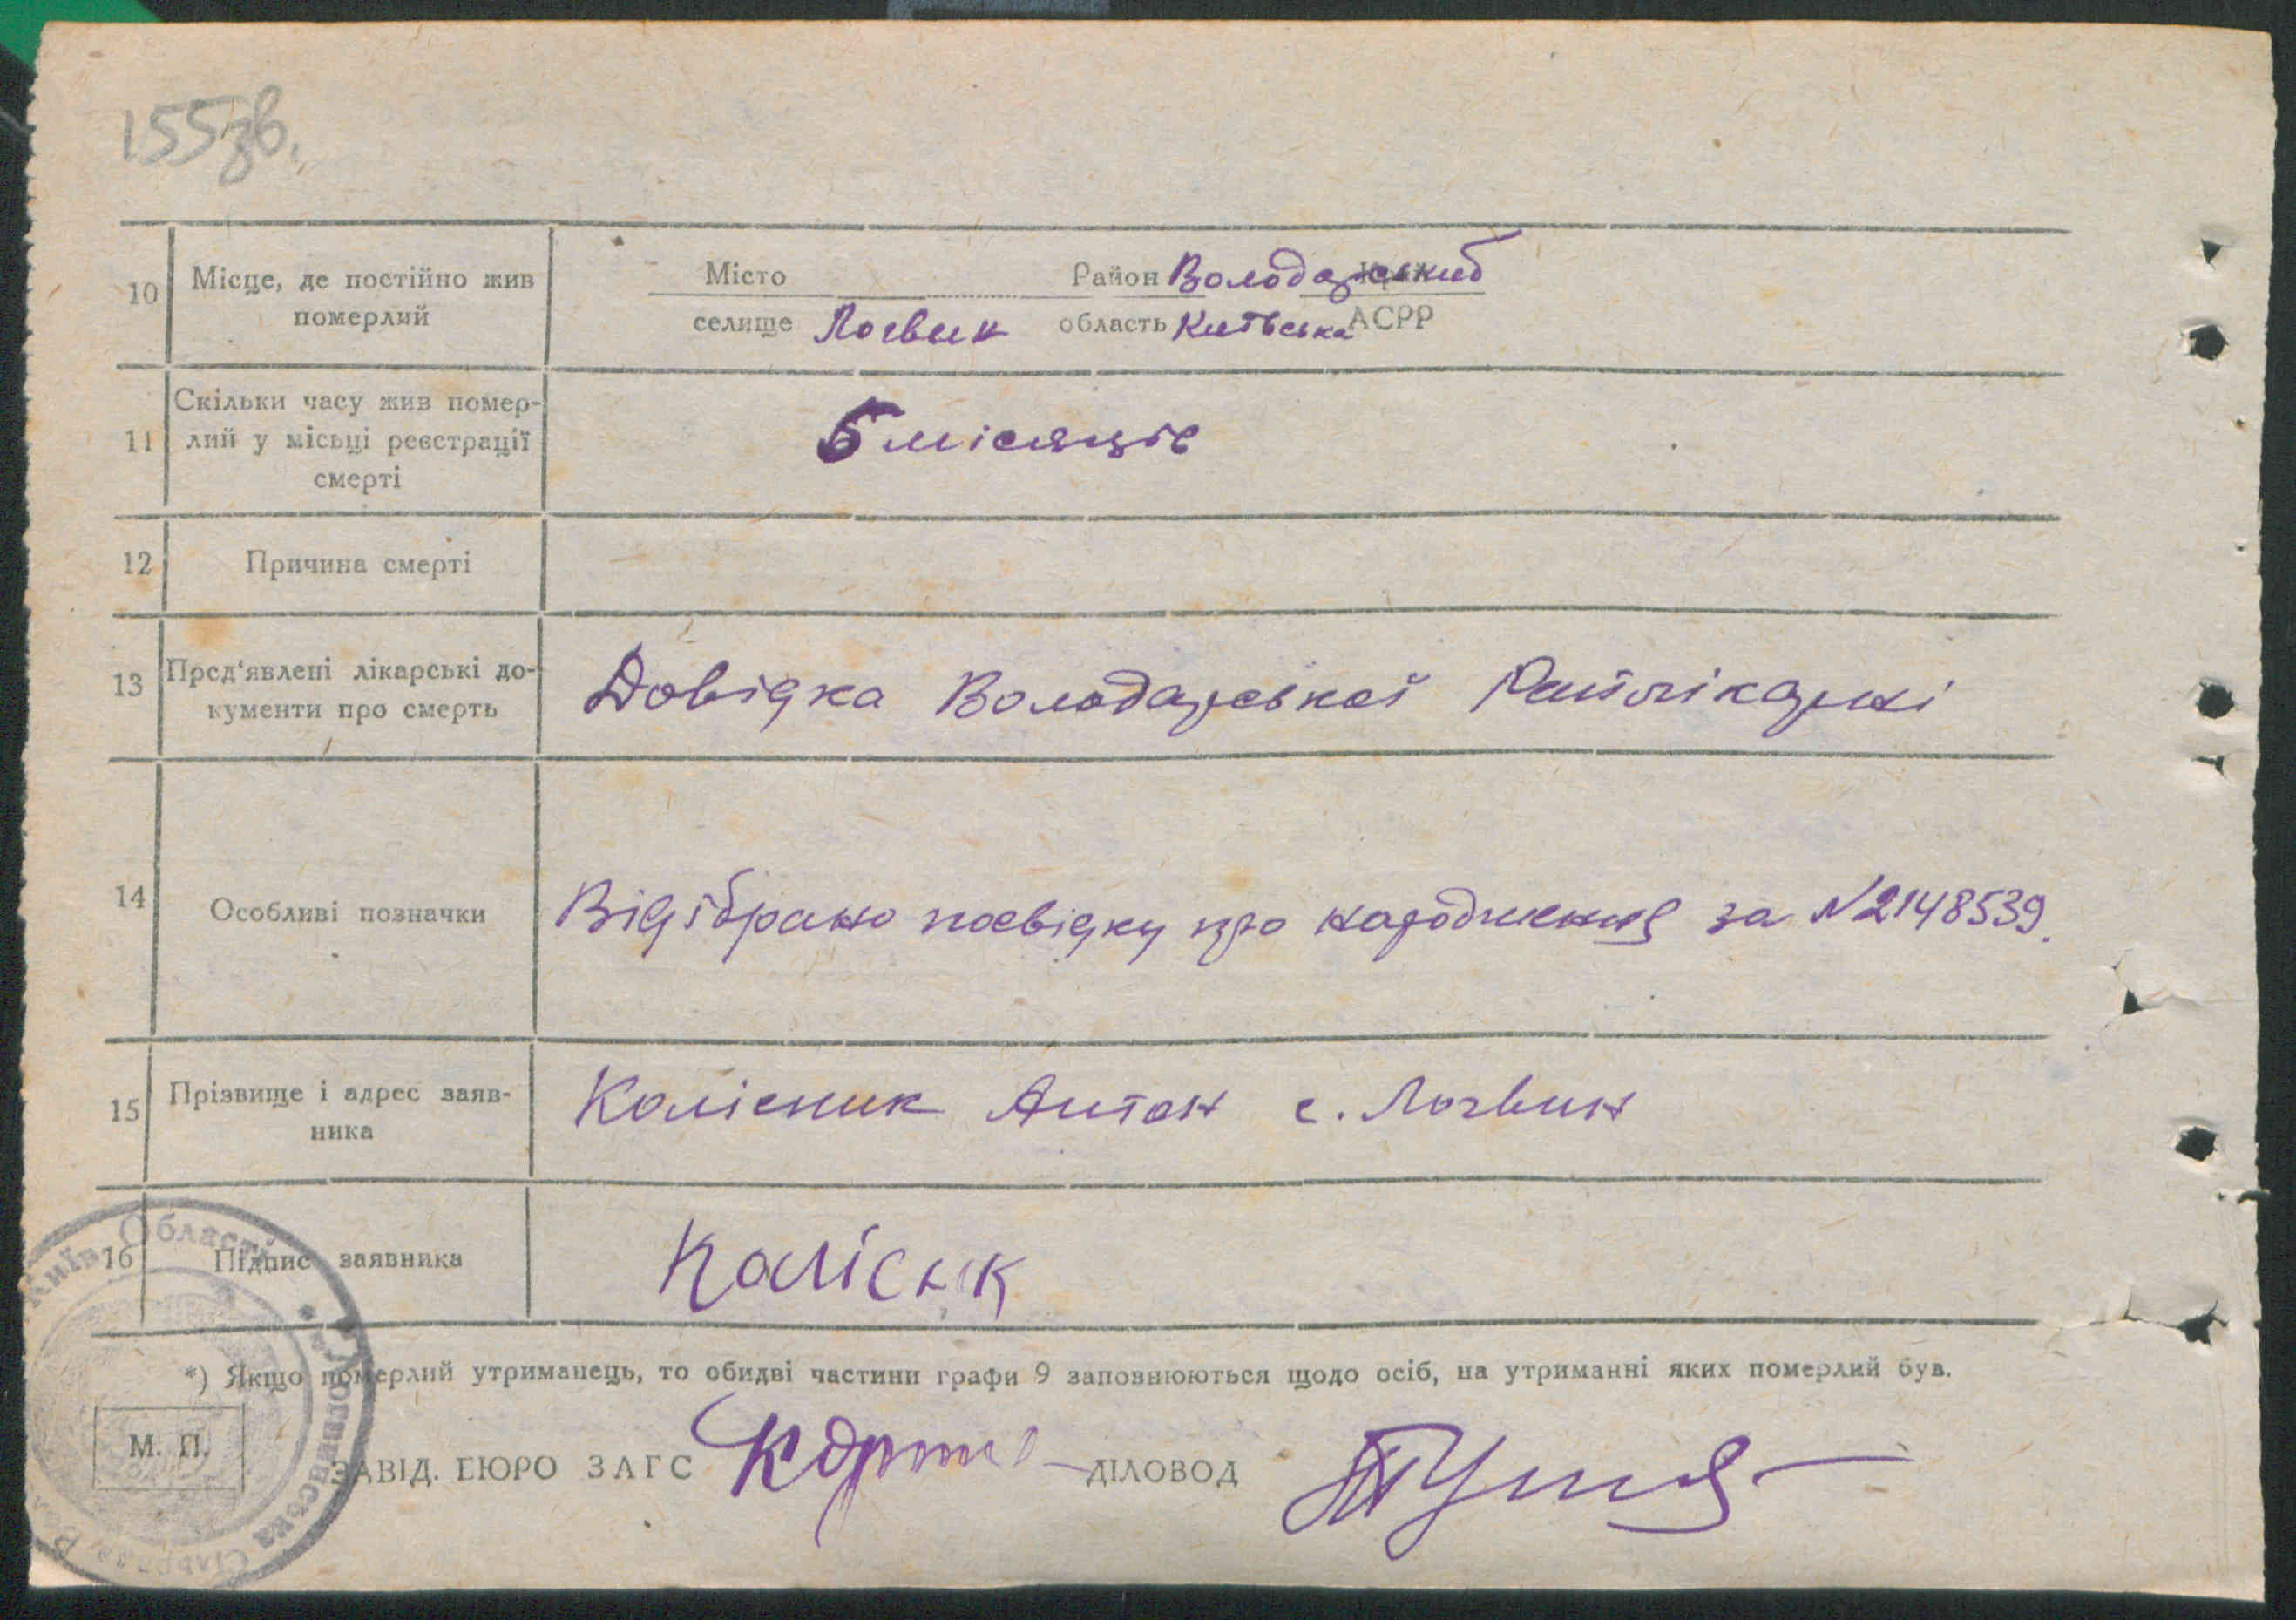 155зв.
10 Місце, де постійно жив Місто Район Володарський
померлий селище Логвин область Київська АСРР
Скільки часу жив помер-
11 лий у місьці реєстрації 6 місяців
смерті
12 Причина смерті
13 Пред'явлені лікарські до- Довідка Володарської Райлікарні
кументи про смерть
14 Особливі позначки Відібрано посвідку про народження за №2148539.
15 Прізвище і адрес заяв- Колісник Антон с. Логвин
ника
16 Підпис заявника Колісник
*) Якщо померлий утриманець, то обидві частини графи 9 заповнюються щодо осіб, на утриманні яких померлий був.
М. П. ЗАВІД. БЮРО ЗАГС ДІЛОВОД
Київ. Область * Логвинська Сільрада